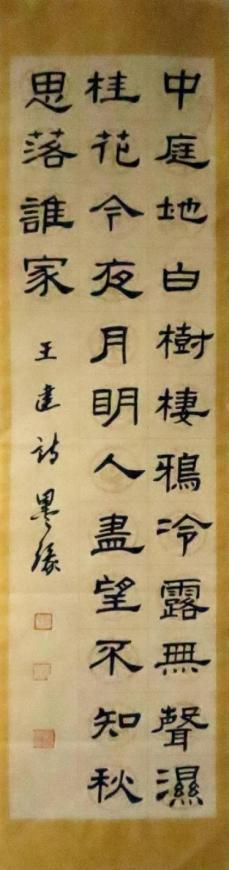 中庭地白樹棲鴉冷露無聲濕
桂花今夜月明人盡望不知秋
思落誰家
王建詩墨緣